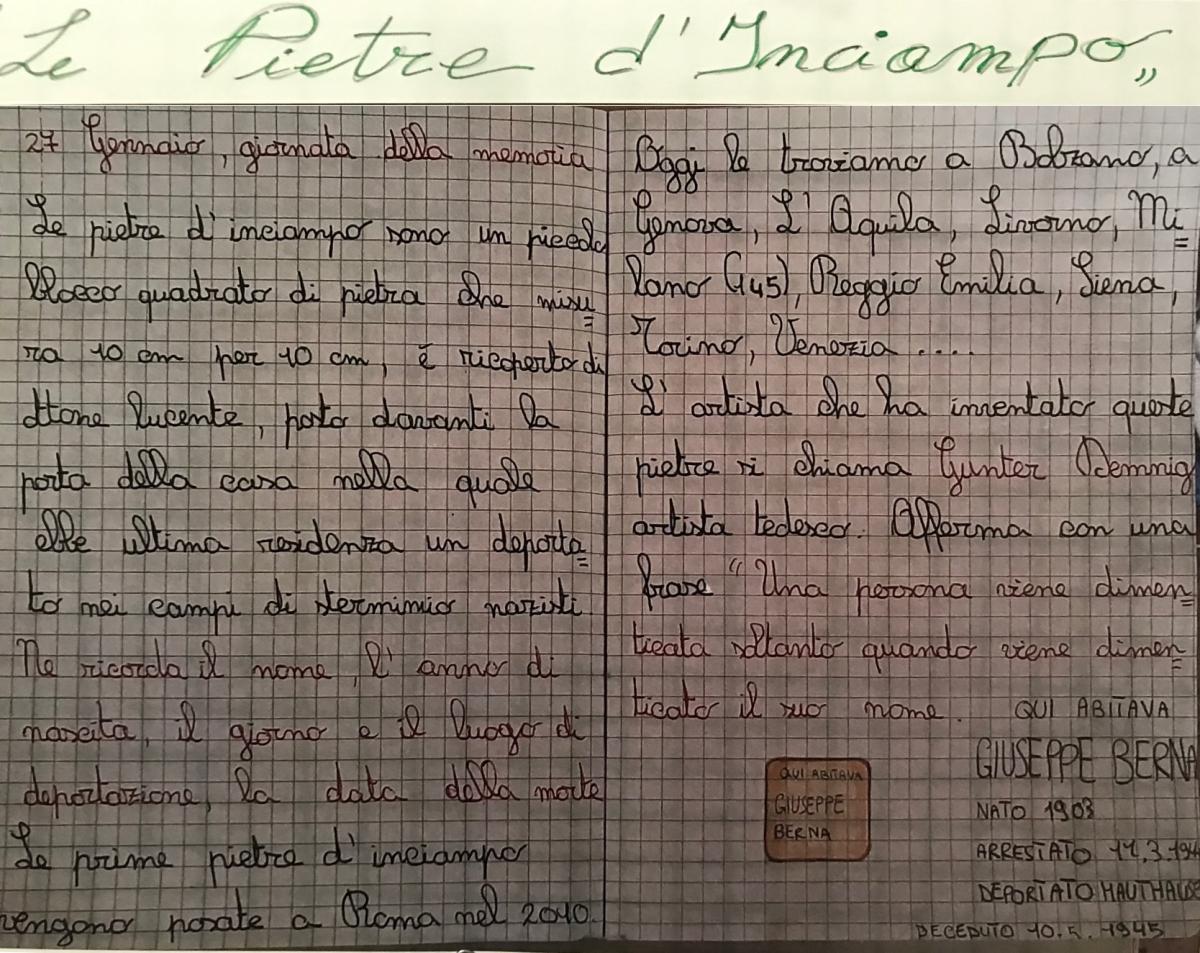 Le Pietre d'Inciampo,,
27 Gennaio, giornata della memoria
Le pietre d'inciampo sono un piccolo
blocco quadrato di pietra che misu=
ra 10 cm per 10 cm, è ricoperto di
ottone lucente, posto davanti la
porta della casa nella quale
ebbe ultima residenza un deporta=
to nei campi di sterminio nazisti
Ne ricorda il nome, l'anno di
nascita, il giorno e il luogo di
deportazione, la data della morte
Le prime pietre d'inciampo
vengono posate a Roma nel 2010.
Oggi le troviamo a Bolzano, a
Genova, L'Aquila, Livorno, Mi=
lano (145), Reggio Emilia, Siena,
Torino, Venezia ....
L'artista che ha inventato queste
pietre si chiama Gunter Demnig
artista tedesco. Afferma con una
frase "Una persona viene dimen=
ticata soltanto quando viene dimen=
ticato il suo nome.
QUI ABITAVA
GIUSEPPE BERNA
NATO 1903
ARRESTATO 11.3.194
DEPORTATO MAUTHAUSE
DECEDUTO 10.5.1945
QUI ABITAVA
GIUSEPPE
BERNA